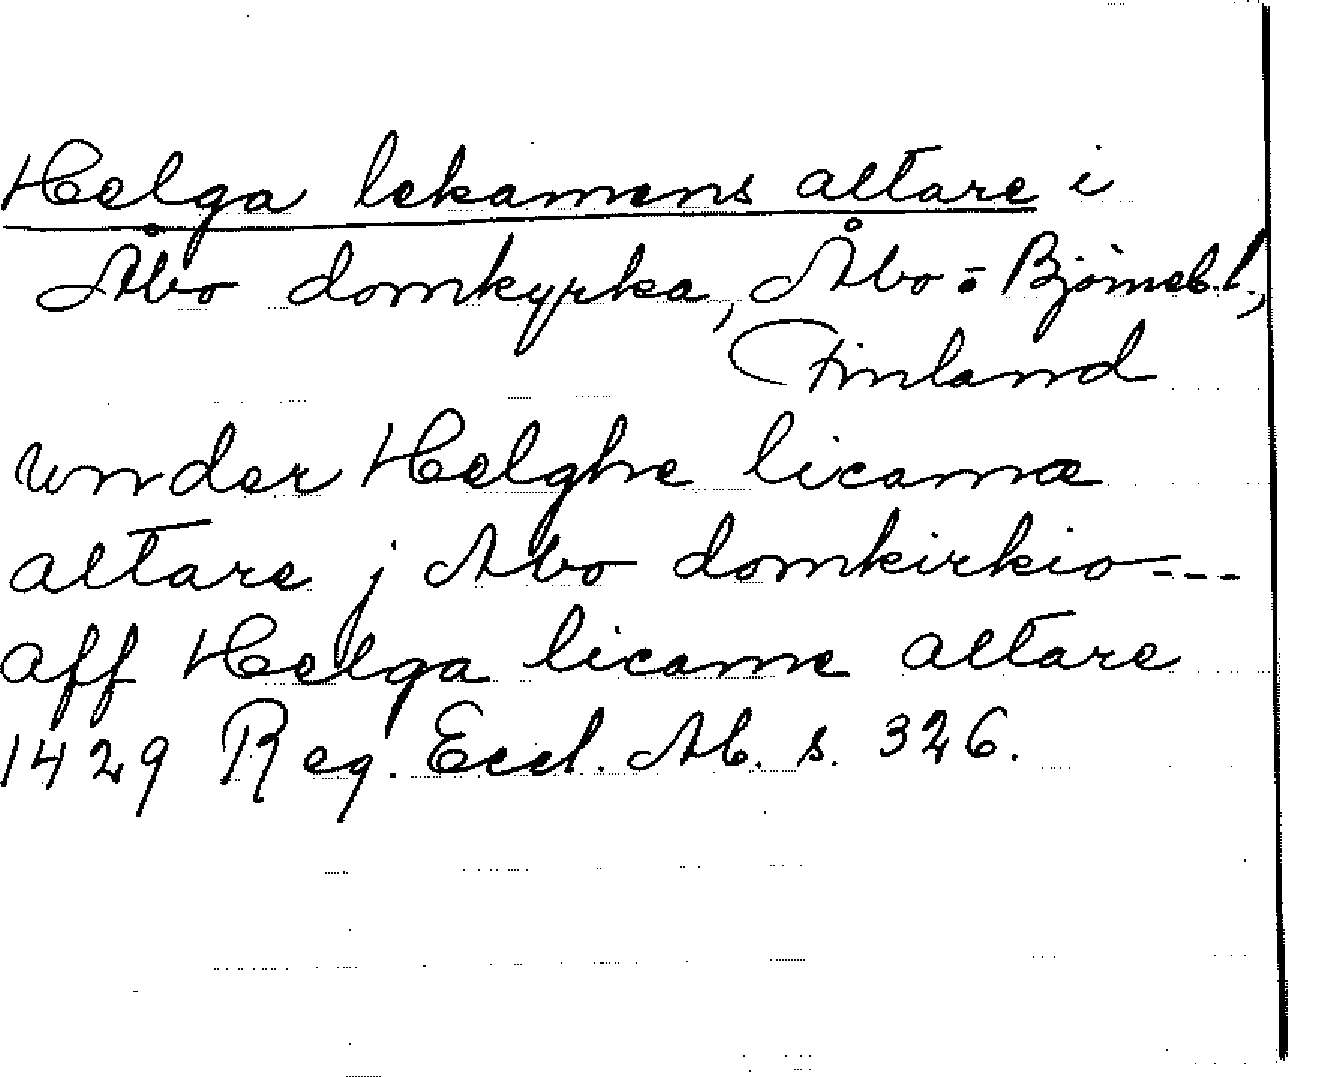 Helga lekamens altare i
Åbo domkyrka, Åbo-Björneb. l.,
Finland
vnder Helghe licama
altare j Abo domkirkio---
aff Helga licame altare
1429 Reg. Eccl. Ab. s. 326.